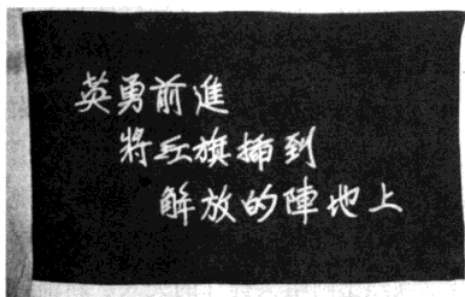 英勇前進
將红旗插到
解放的陣地上